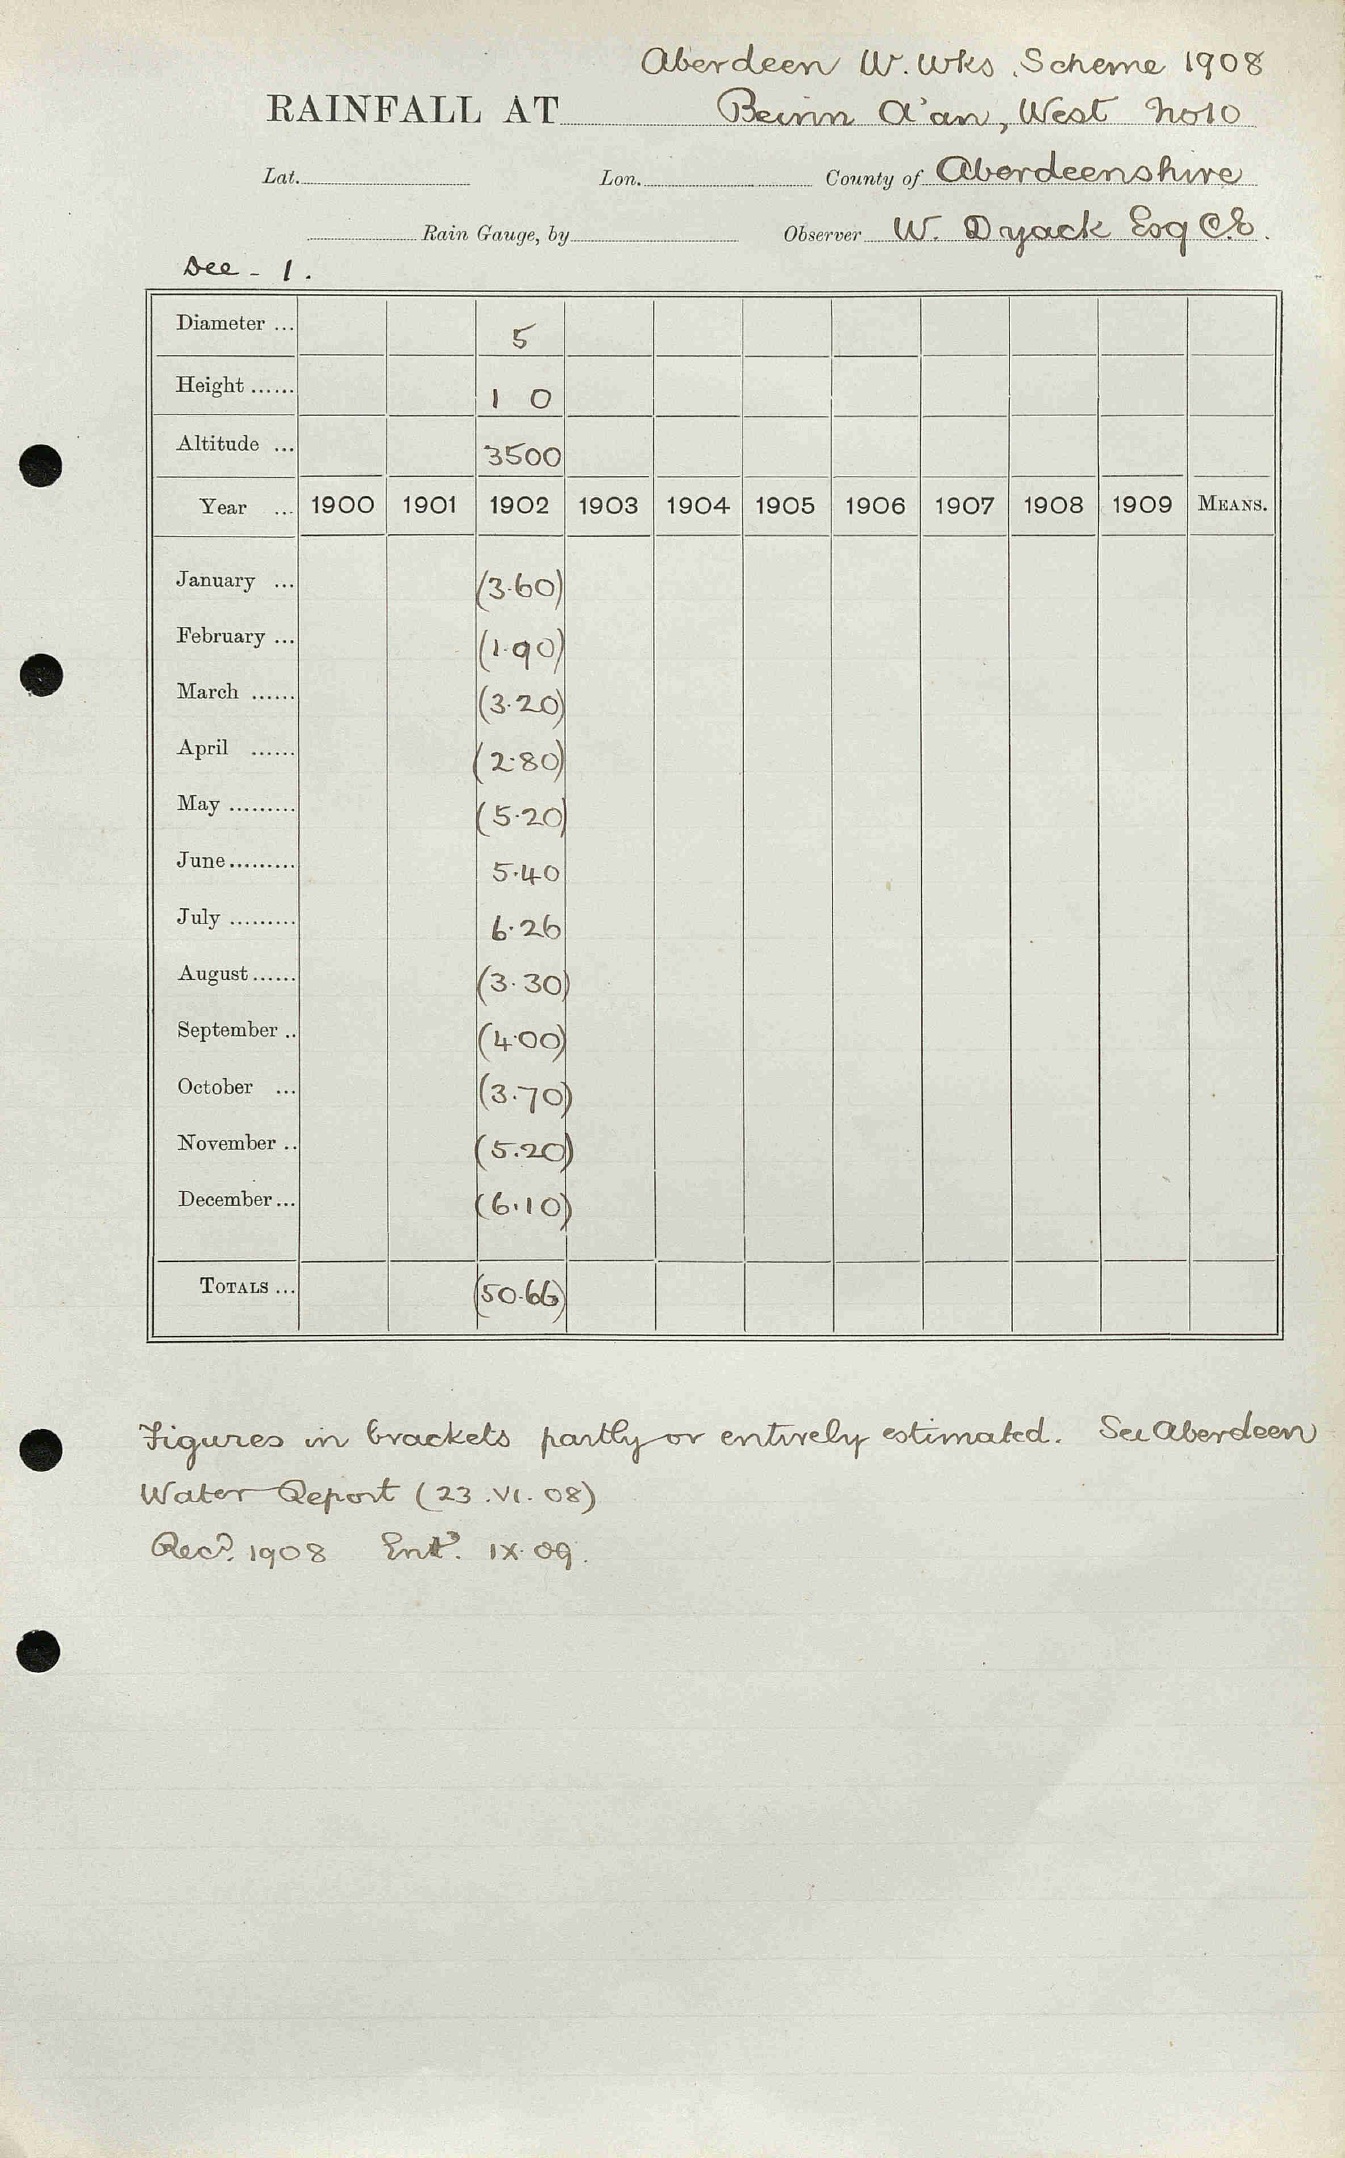 Aberdeen W. Wks. Scheme 1908
RAINFALL AT Beinn A'an, West No 10
Lat. Lon. County of Aberdeenshire
Rain Gauge, by Observer W. Dyack Esq C.E.
Dee - 1.
Diameter ... 5
Height ...... 1 0
Altitude ... 3500
Year ... 1900 1901 1902 1903 1904 1905 1906 1907 1908 1909 MEANS.
January ... (3.60)
February ... (1.90)
March ...... (3.20)
April ...... (2.80)
May ......... (5.20)
June ......... 5.40
July ......... 6.26
August ...... (3.30)
September .. (4.00)
October ... (3.70)
November .. (5.20)
December ... (6.10)
TOTALS ... (50.66)
Figures in brackets partly or entirely estimated. See Aberdeen
Water Report (23.VI.08)
Recd. 1908 Entd. IX.09.